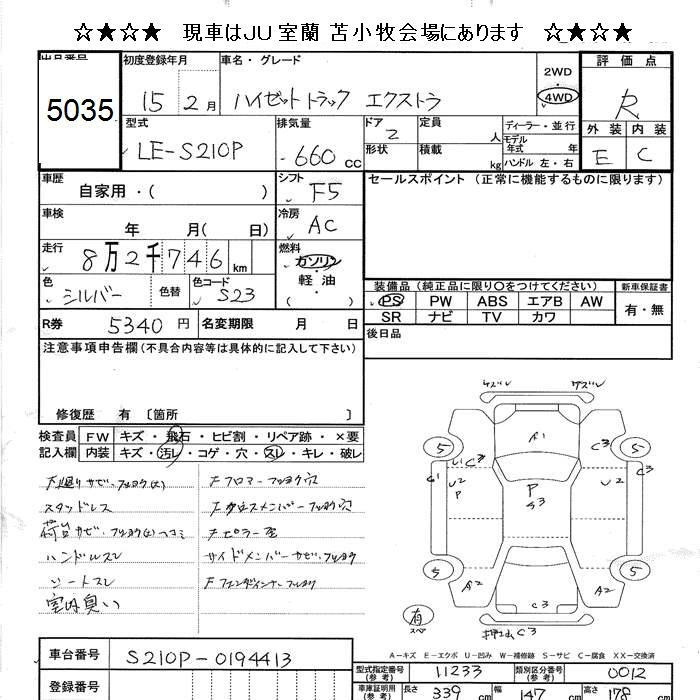 ☆★☆★ 現車はJU室蘭 苫小牧会場にあります ☆★☆★
出品番号 初度登録年月 車名・グレード 評価点
5035 15 2月 ハイゼットトラック エクストラ 2WD 4WD R
型式 排気量 ドア 2 定員 人 ディーラー・並行 外装 内装
LE-S210P 660cc 形状 積載 kg モデル年式 年 ハンドル 左・右 E C
車歴 自家用・( ) シフト F5 セールスポイント (正常に機能するものに限ります)
車検 年 月( 日) 冷房 AC
走行 8万2千746km 燃料 ガソリン・軽油 ( )
色 シルバー 色替 色コード S23 装備品 (純正品に限り○をつけてください) 新車保証書
PS PW ABS エアB AW 有・無
SR ナビ TV カワ
R券 5340円 名変期限 月 日 後日品
注意事項申告欄(不具合内容等は具体的に記入して下さい)
修復歴 有 〔箇所 〕
検査員 FW キズ・飛石・ヒビ割・リペア跡・×要
記入欄 内装 キズ・汚レ・コゲ・穴・スレ・キレ・破レ
下廻りサビ、フショク(大) Fフロアーフショク穴
スタッドレス Fクロスメンバーフショク穴
荷台サビ・フショク(大)ヘコミ
ハンドルスレ サイドメンバーサビ・フショク
シートスレ Fフェンダインナーフショク
室内臭い
ケズレ ケズレ
A1
5 U1 C3 C3 5
G1 U2 P U2
P S3
5 5
A2 A2
C3
有 スペ
押込みC3
A-キズ E-エクボ U-凹み W-補修跡 S-サビ C-腐食 XX-交換済
車台番号 S210P-0194413 型式指定番号(参考) 11233 類別区分番号(参考) 0012
登録番号 車庫証明用(参考) 長さ 339cm 幅 147cm 高さ 178cm